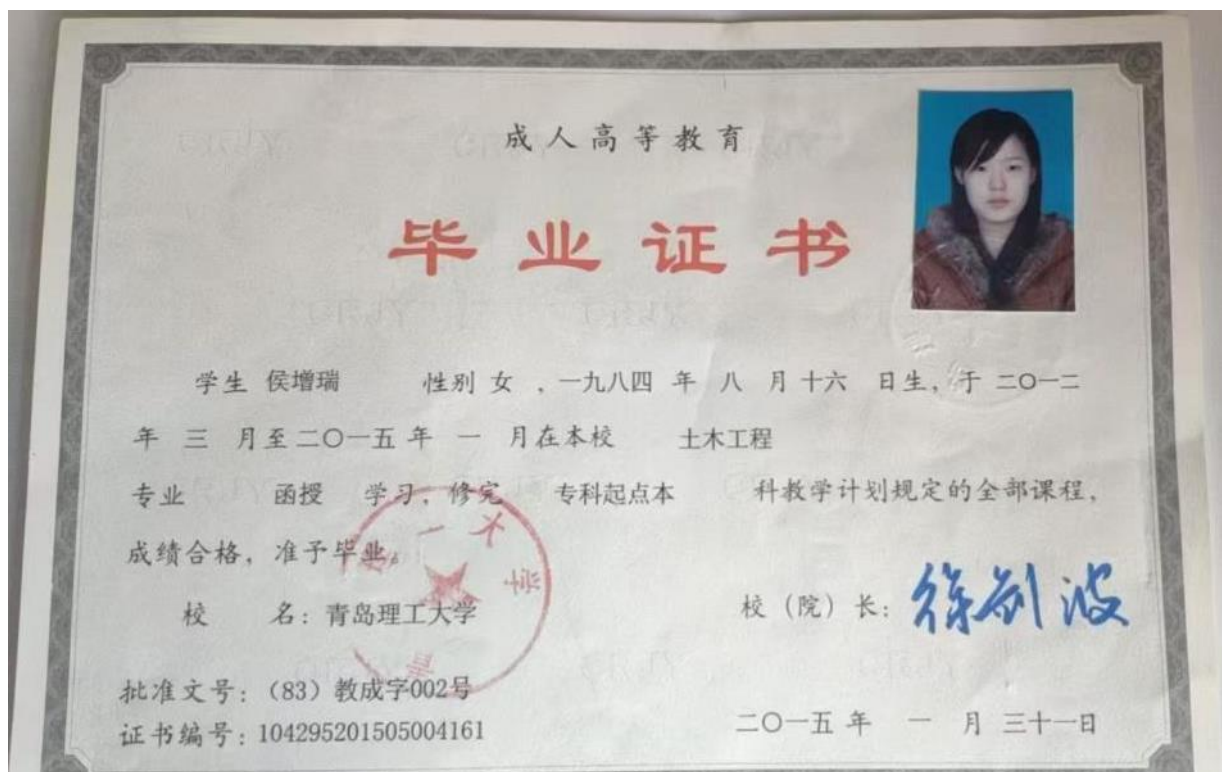 成人高等教育
毕业证书
学生 侯增瑞 性别 女 ，一九八四 年 八 月 十六 日生，于 二〇一二
年 三 月至 二〇一五 年 一 月在本校 土木工程
专业 函授 学习，修完 专科起点本 科教学计划规定的全部课程，
成绩合格，准予毕业。
校 名：青岛理工大学
校（院）长：徐剑波
批准文号：（83）教成字002号
证书编号：104295201505004161
二〇一五 年 一 月 三十一日